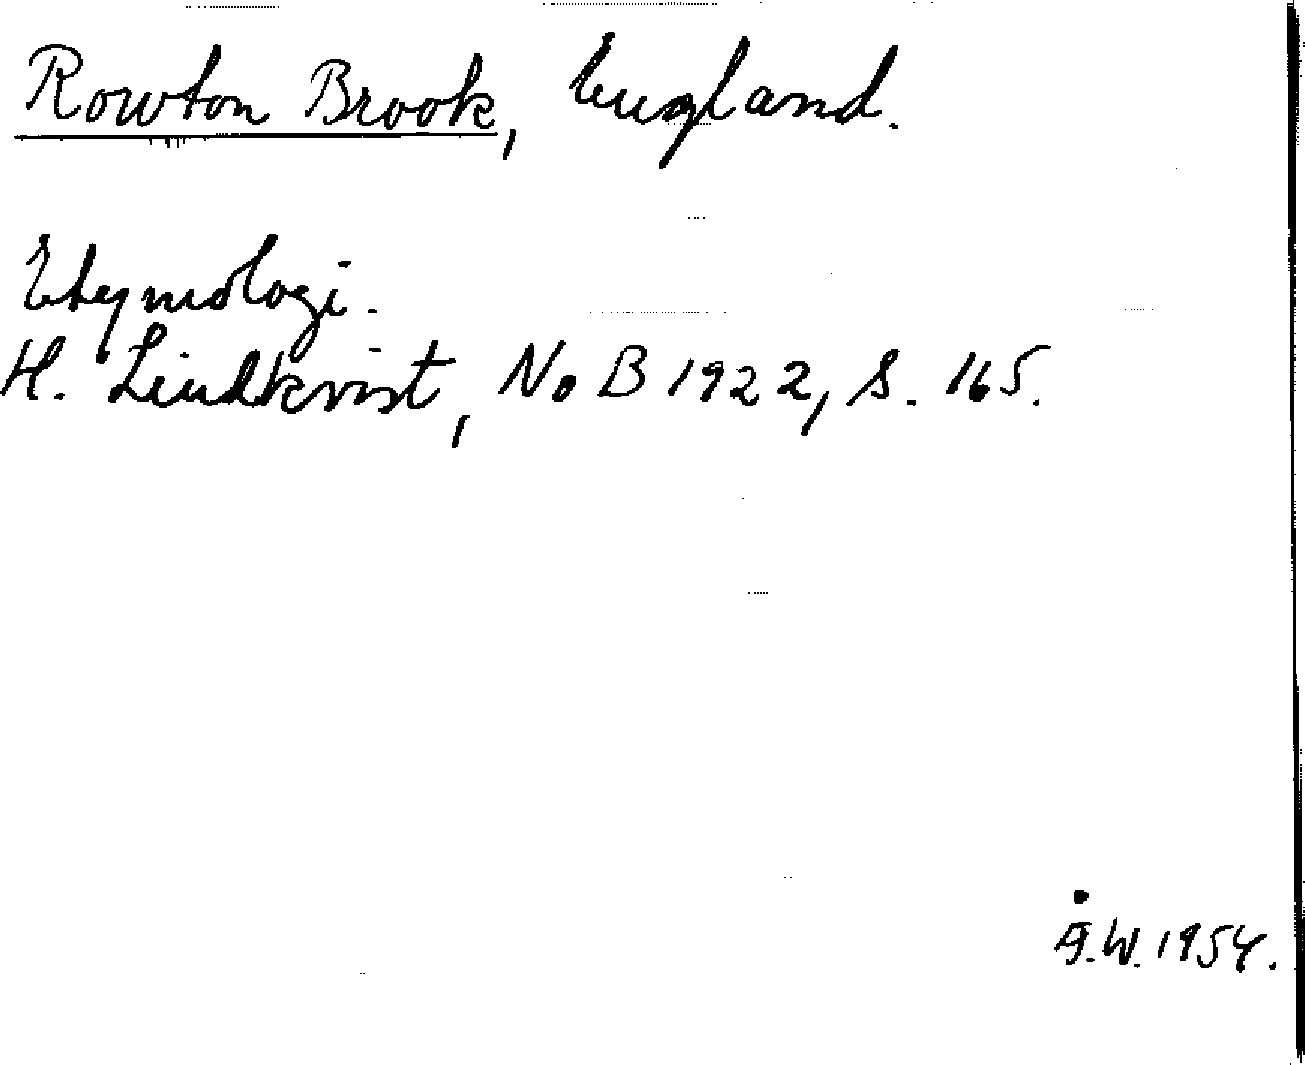 Rowton Brook, England.
Etymologi.
H. Lindkvist, NoB 1922, S. 165.
Å.W. 1954.